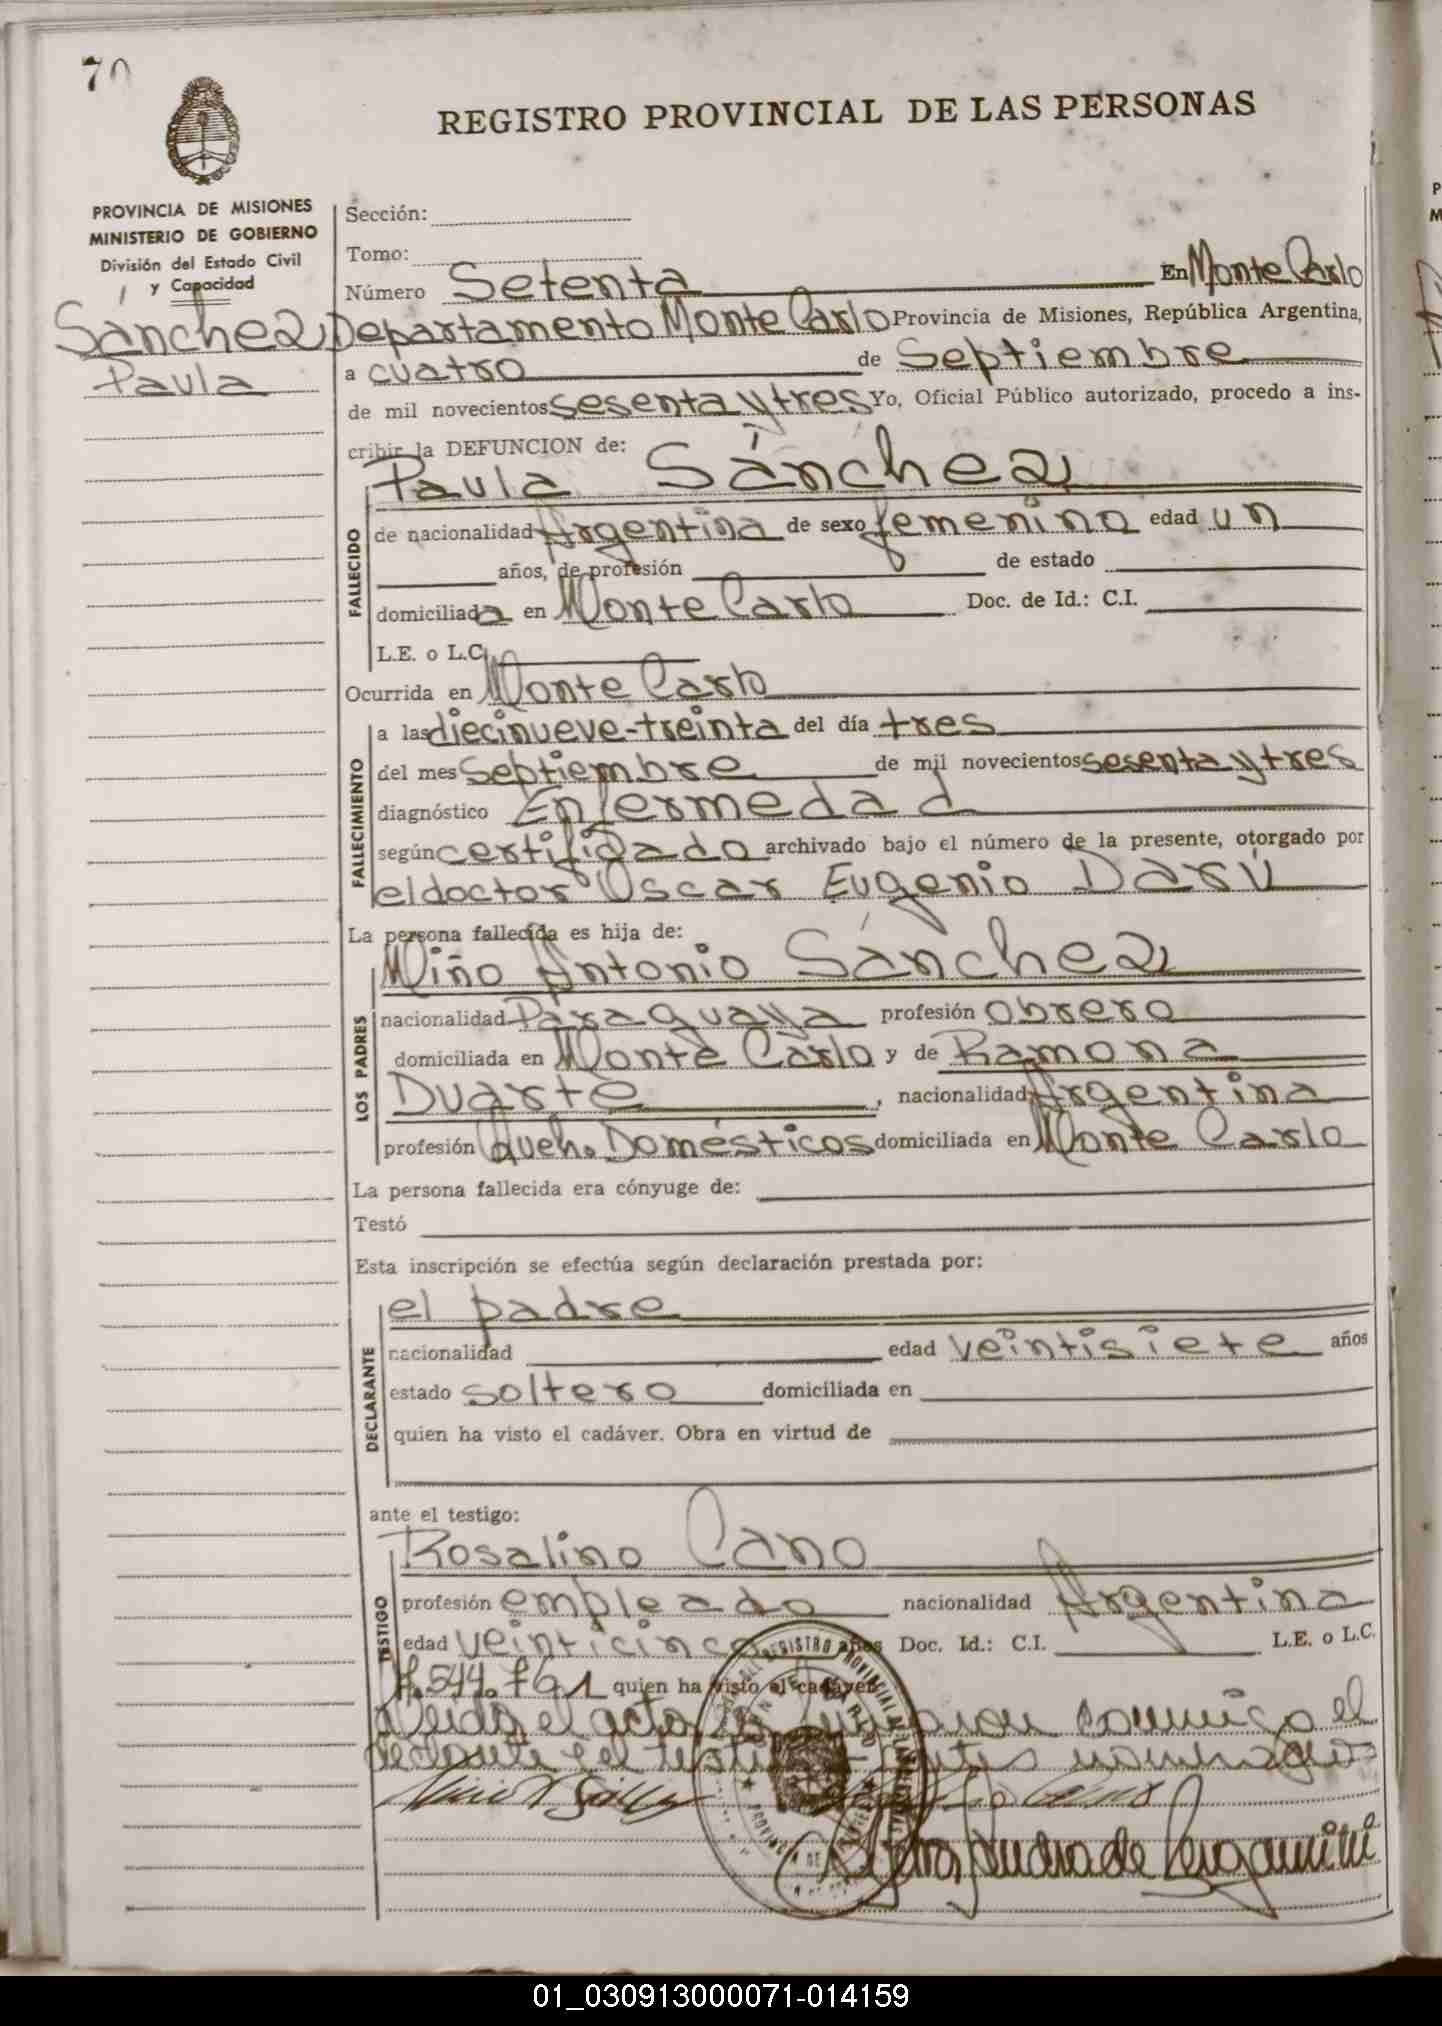 70
REGISTRO PROVINCIAL DE LAS PERSONAS
PROVINCIA DE MISIONES
MINISTERIO DE GOBIERNO
División del Estado Civil
y Capacidad
Sánchez
Paula
Sección:
Tomo:
Número Setenta En Monte Carlo
Departamento Monte Carlo Provincia de Misiones, República Argentina,
a cuatro de Septiembre
de mil novecientos sesenta y tres Yo, Oficial Público autorizado, procedo a ins-
cribir la DEFUNCION de:
Paula Sánchez
FALLECIDO
de nacionalidad Argentina de sexo femenino edad un
años, de profesión de estado
domiciliada en Monte Carlo Doc. de Id.: C.I.
L.E. o L.C.
Ocurrida en Monte Carlo
FALLECIMIENTO
a las diecinueve-treinta del día tres
del mes Septiembre de mil novecientos sesenta y tres
diagnóstico Enfermedad
según certificado archivado bajo el número de la presente, otorgado por
el doctor Oscar Eugenio Darú
La persona fallecida es hija de:
LOS PADRES
Miño Antonio Sánchez
nacionalidad Paraguaya profesión obrero
domiciliada en Monte Carlo y de Ramona
Duarte, nacionalidad Argentina
profesión Queh. Domésticos domiciliada en Monte Carlo
La persona fallecida era cónyuge de:
Testó
Esta inscripción se efectúa según declaración prestada por:
DECLARANTE
el padre
nacionalidad edad veintisiete años
estado soltero domiciliada en
quien ha visto el cadáver. Obra en virtud de
ante el testigo:
TESTIGO
Rosalino Cano
profesión empleado nacionalidad Argentina
edad veinticinco años Doc. Id.: C.I. L.E. o L.C.
7.544.791 quien ha visto el cadáver
Leida el acta la firman conmigo el
declarante y el testigo antes nombrados
de Bergamini
01_030913000071-014159